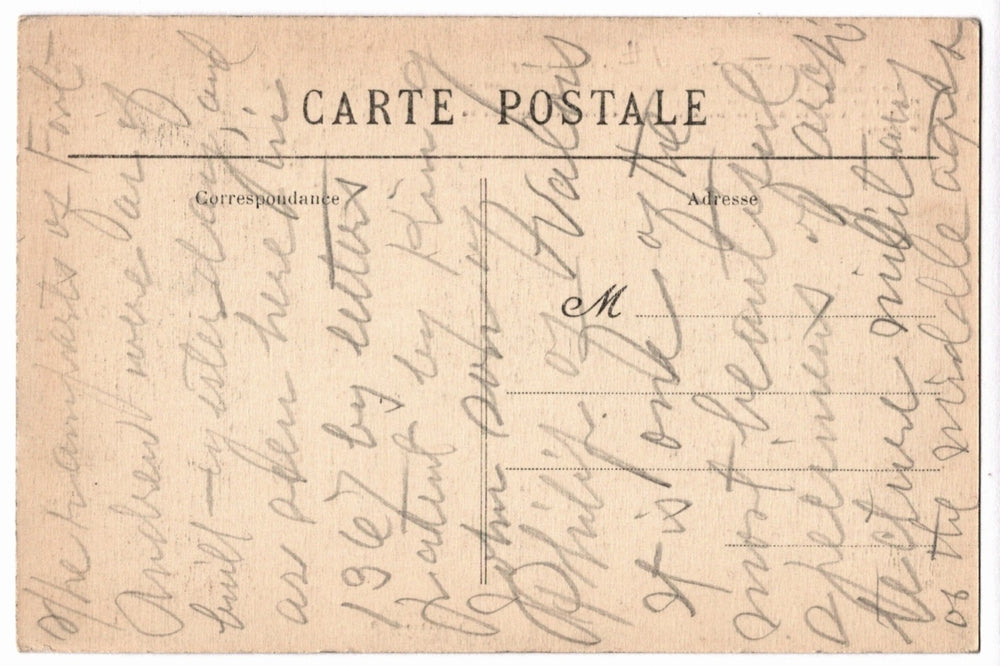 CARTE POSTALE
Correspondance
Adresse
M
The ramparts of Fort
Andrew were partly
built yesterday, and
as seen here in
1367 by letters
Patent by King
John son of
Philip of Valois
It is one of the
most beautiful
specimens of archi
tecture military
of the middle ages